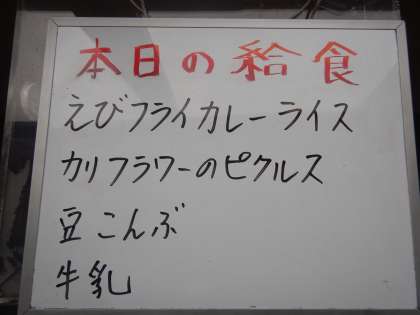 本日の給食
えびフライカレーライス
カリフラワーのピクルス
豆こんぶ
牛乳